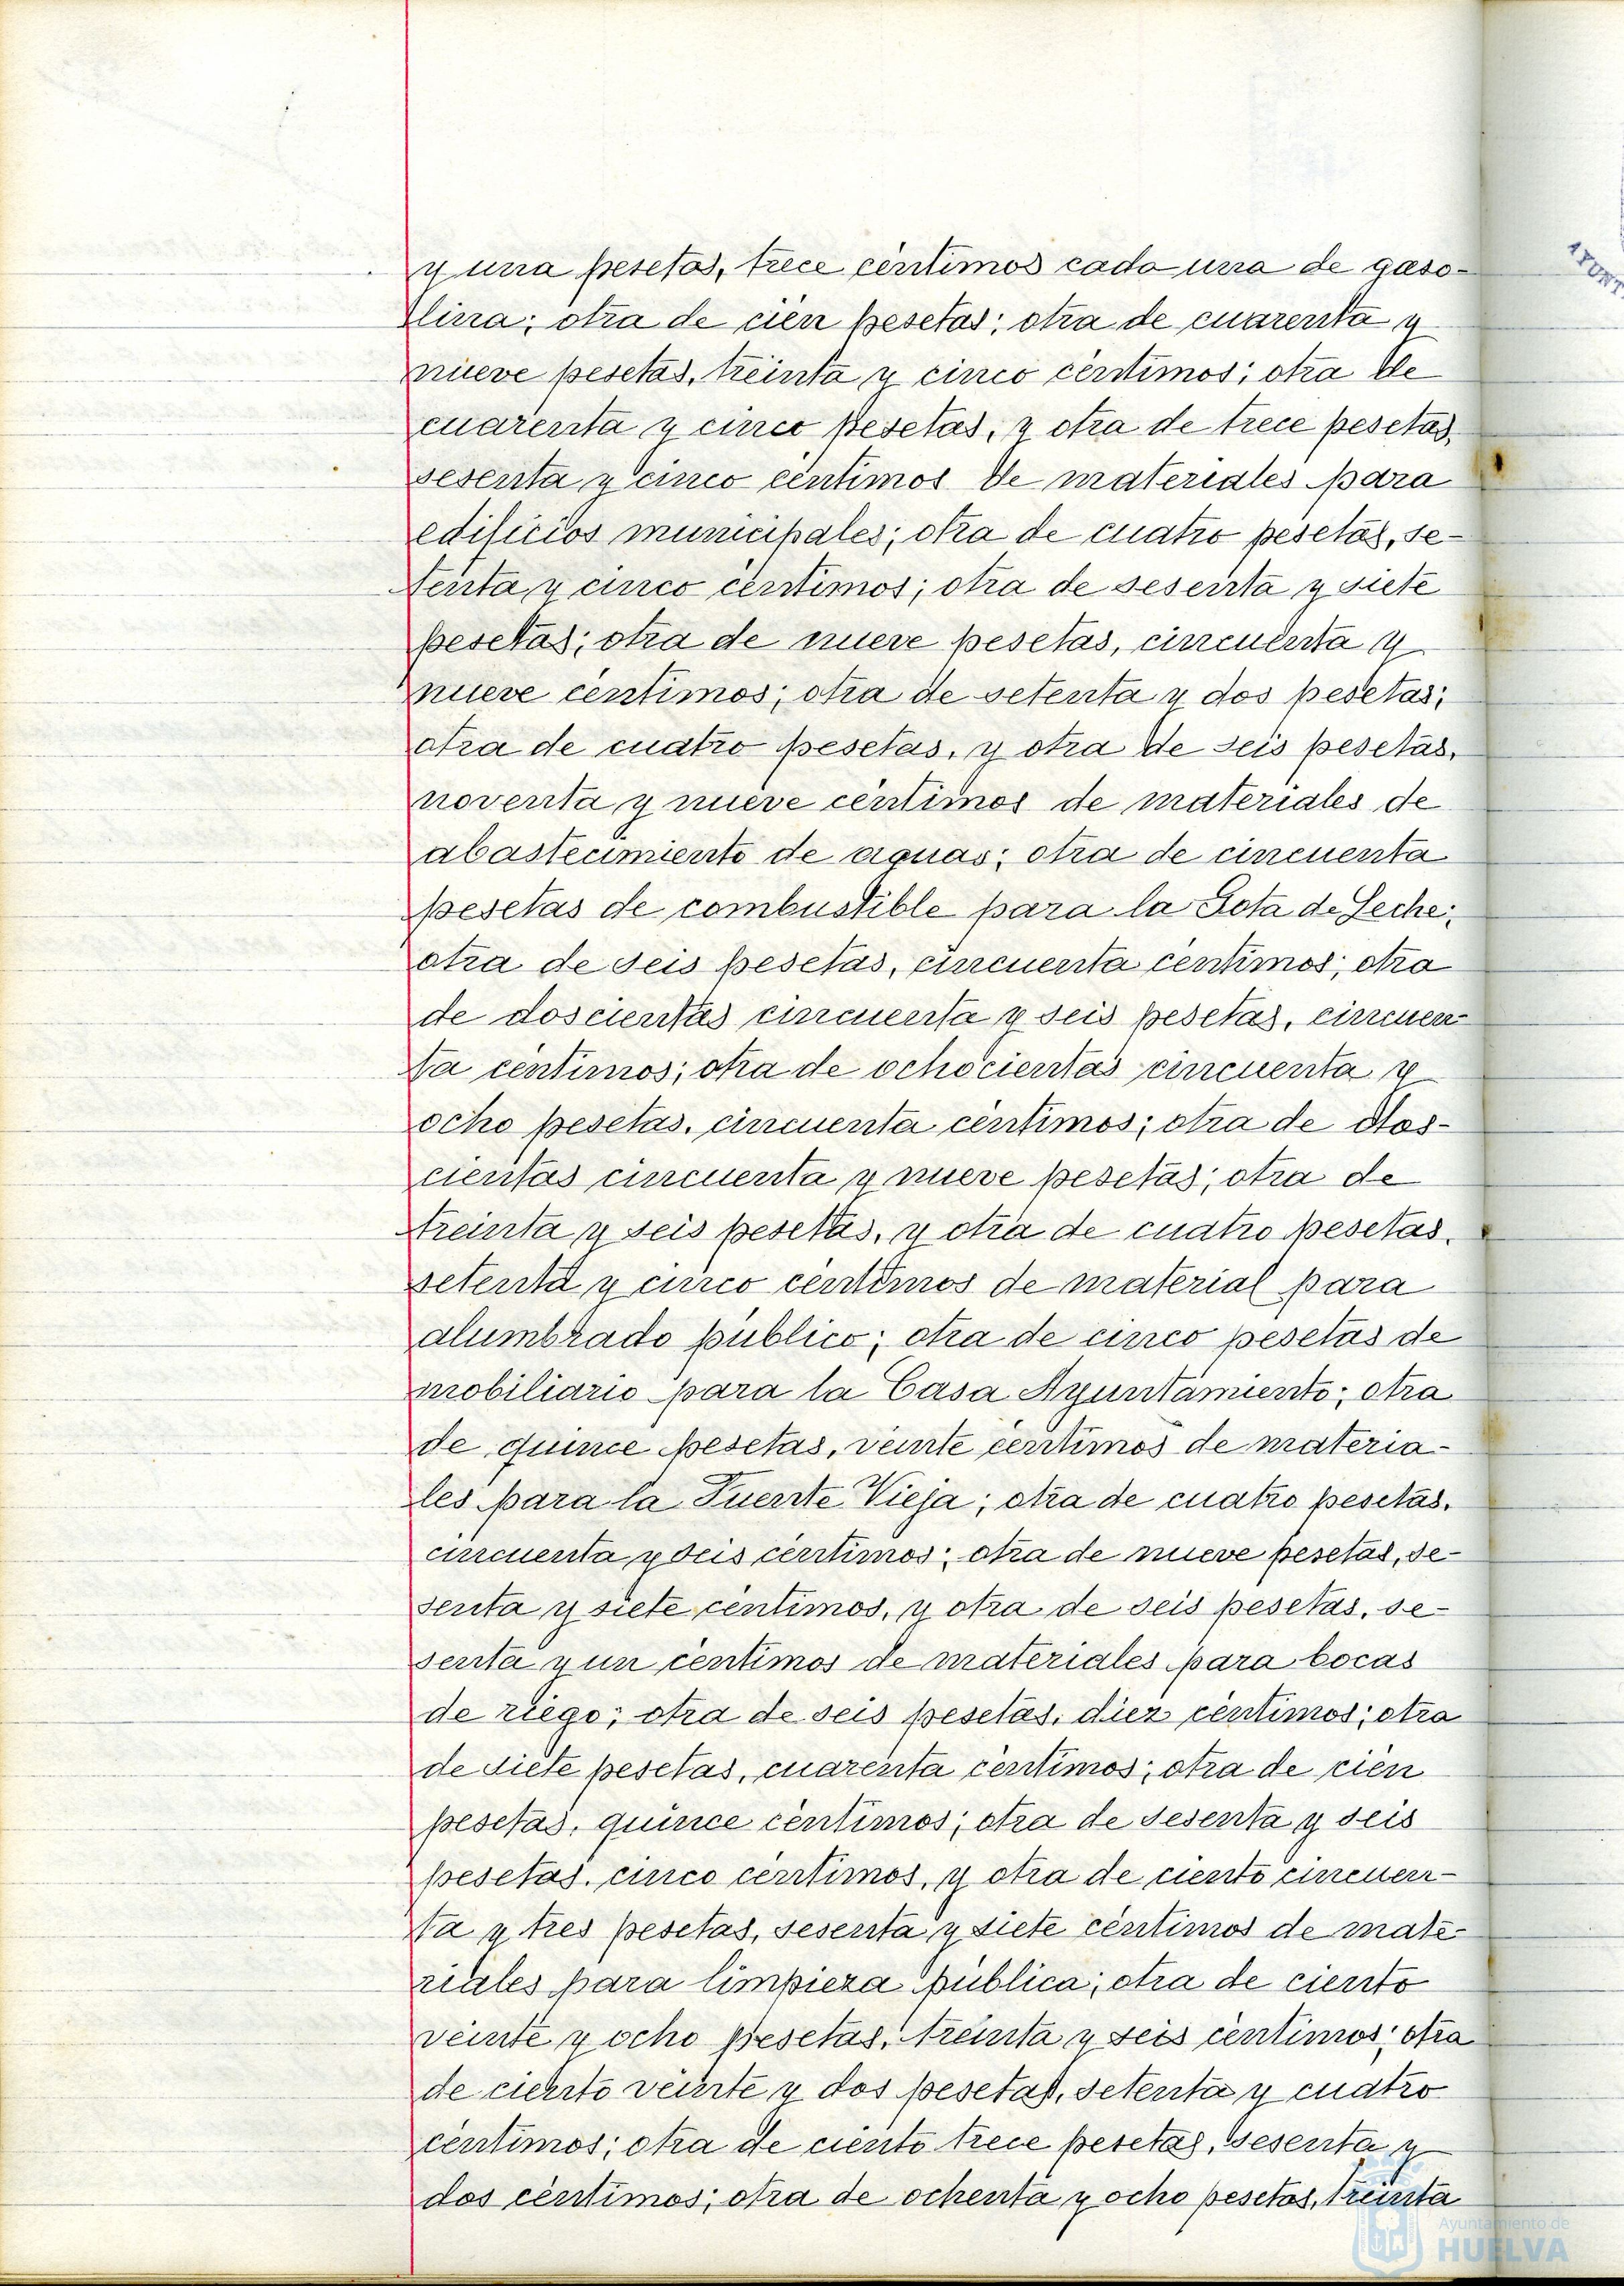 y una pesetas, trece céntimos cada una de gaso-
lina; otra de cien pesetas; otra de cuarenta y
nueve pesetas, treinta y cinco céntimos; otra de
cuarenta y cinco pesetas, y otra de trece pesetas,
sesenta y cinco céntimos de materiales para
edificios municipales; otra de cuatro pesetas, se-
tenta y cinco céntimos; otra de sesenta y siete
pesetas; otra de nueve pesetas, cincuenta y
nueve centimos; otra de setenta y dos pesetas;
otra de cuatro pesetas, y otra de seis pesetas,
noventa y nueve céntimos de materiales de
abastecimiento de aguas; otra de cincuenta
pesetas de combustible para la Gota de Leche;
otra de seis pesetas, cincuenta centimos; otra
de doscientas cincuenta y seis pesetas, cincuen-
ta centimos; otra de ochocientas cincuenta y
ocho pesetas, cincuenta céntimos; otra de dos-
cientas cincuenta y nueve pesetas; otra de
treinta y seis pesetas, y otra de cuatro pesetas,
setenta y cinco centimos de material para
alumbrado público; otra de cinco pesetas de
mobiliario para la Casa Ayuntamiento; otra
de quince pesetas, veinte centimos de materia-
les para la Fuente Vieja; otra de cuatro pesetas,
cincuenta y seis céntimos; otra de nueve pesetas, se-
senta y siete centimos, y otra de seis pesetas, se-
senta y un centimos de materiales para bocas
de riego; otra de seis pesetas, diez céntimos; otra
de siete pesetas, cuarenta céntimos; otra de cien
pesetas, quince céntimos; otra de sesenta y seis
pesetas, cinco centimos, y otra de ciento cincuen-
ta y tres pesetas, sesenta y siete céntimos de mate-
riales para limpieza pública; otra de ciento
veinte y ocho pesetas, treinta y seis céntimos; otra
de ciento veinte y dos pesetas, setenta y cuatro
céntimos; otra de ciento trece pesetas, sesenta y
dos céntimos; otra de ochenta y ocho pesetas, treinta
Ayuntamiento de
HUELVA